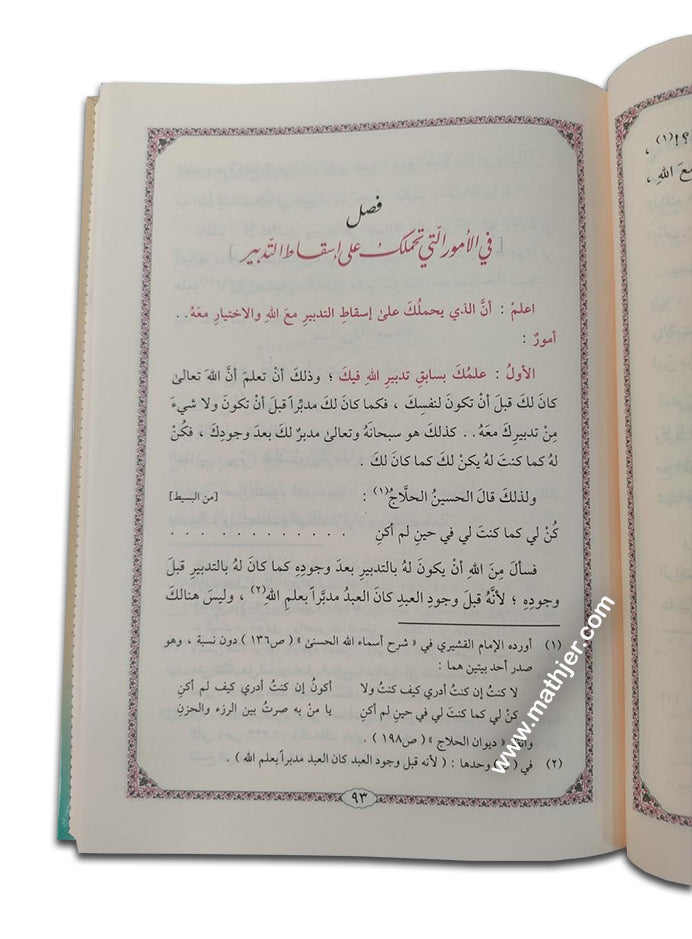 فصل
[ في الأمور التي تحملك على إسقاط التدبير ]
اعلمْ : أنَّ الذي يحملُكَ على إسقاطِ التدبيرِ معَ اللهِ والاختيارِ معَهُ . .
أمورٌ :
الأولُ : علمُكَ بسابقِ تدبيرِ اللهِ فيكَ ؛ وذلكَ أنْ تعلمَ أنَّ اللهَ تعالى
كانَ لكَ قبلَ أنْ تكونَ لنفسِكَ ، فكما كانَ لكَ مدبِّراً قبلَ أنْ تكونَ ولا شيءَ
مِنْ تدبيرِكَ معَهُ . . كذلكَ هو سبحانَهُ وتعالى مدبرٌ لكَ بعدَ وجودِكَ ، فكُنْ
لهُ كما كنتَ لهُ يكنْ لكَ كما كانَ لكَ .
ولذلكَ قالَ الحسينُ الحلَّاجُ(١) : [من البسيط]
كُنْ لي كما كنتَ لي في حينِ لم أكنِ . . . . . . . . . . . .
فسألَ مِنَ اللهِ أنْ يكونَ لهُ بالتدبيرِ بعدَ وجودِهِ كما كانَ لهُ بالتدبيرِ قبلَ
وجودِهِ ؛ لأنَّهُ قبلَ وجودِ العبدِ كانَ العبدُ مدبَّراً بعلمِ اللهِ(٢) ، وليسَ هنالكَ
(١) أورده الإمام القشيري في « شرح أسماء الله الحسنى » ( ص١٣٦ ) دون نسبة ، وهو
صدر أحد بيتين هما :
لا كنتُ إن كنتُ أدري كيف كنتُ ولا أكونُ إن كنتُ أدري كيف لم أكنِ
كنْ لي كما كنتَ لي في حينِ لم أكنِ يا منْ به صرتُ بين الرزء والحزنِ
« ديوان الحلاج » ( ص١٩٨ ) .
(٢) في وحدها : ( لأنه قبل وجود العبد كان العبد مدبراً بعلم الله ) .
٩٣
؟!(١) ،
معَ اللهِ ،
www.mathjer.com